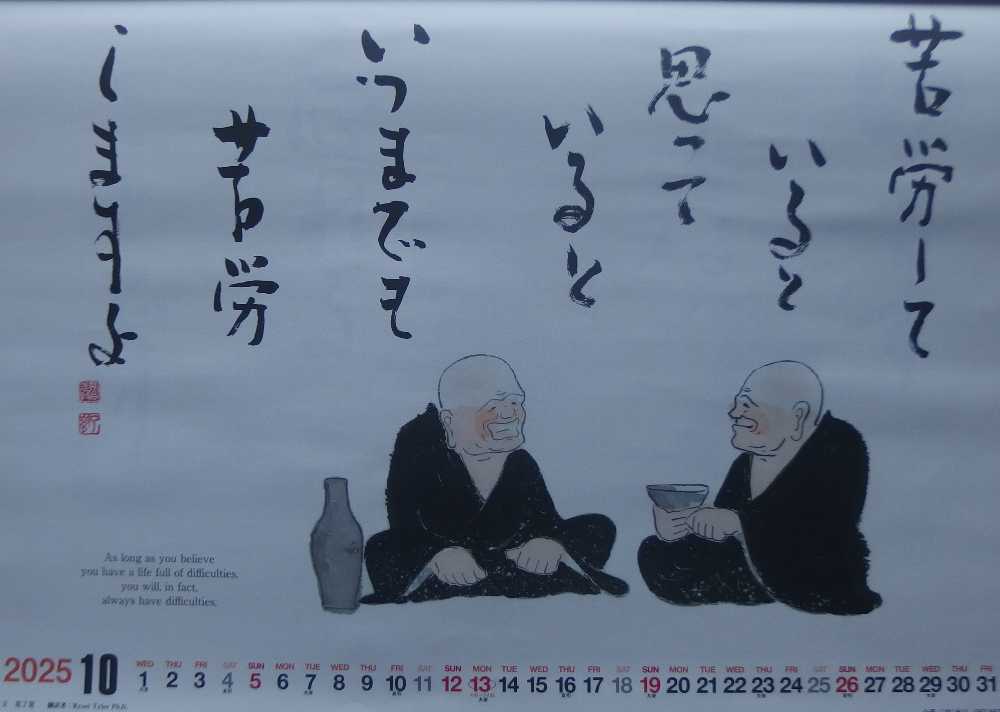 苦労して
いると
思って
いると
いつまでも
苦労
しますよ
As long as you believe
you have a life full of difficulties,
you will, in fact,
always have difficulties.
2025 10
WED THU FRI SAT SUN MON TUE WED THU FRI SAT SUN MON TUE WED THU FRI SAT SUN MON TUE WED THU FRI SAT SUN MON TUE WED THU FRI
1 2 3 4 5 6 7 8 9 10 11 12 13 14 15 16 17 18 19 20 21 22 23 24 25 26 27 28 29 30 31